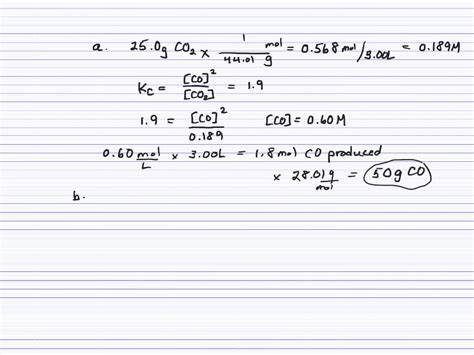 a. 25.0g CO₂ × 1 mol / 44.01 g = 0.568 mol / 3.00L = 0.189M
Kc = [CO]² / [CO₂] = 1.9
1.9 = [CO]² / 0.189 [CO] = 0.60 M
0.60 mol / L × 3.00L = 1.8 mol CO produced
× 28.01 g / mol = 50g CO
b.